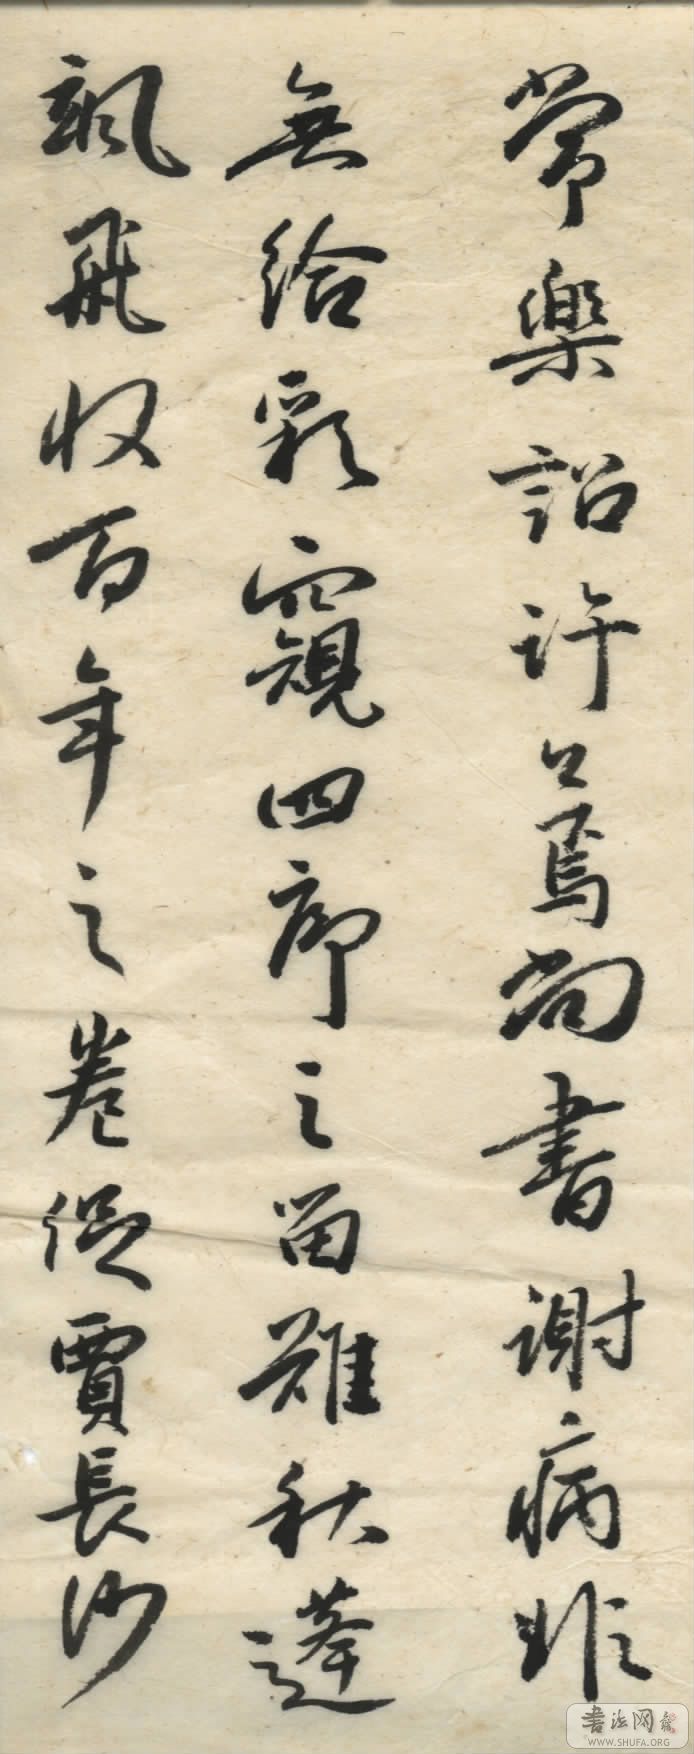 常樂詔許焉尚書謝病非
無給彩窺四郎之留雖秋蓬
飄飛收百年之卷從賈長沙
書法网
WWW.SHUFA.ORG